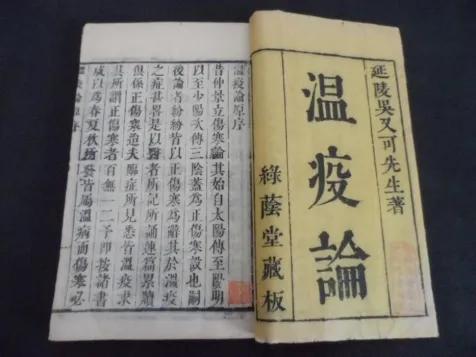 延陵吳又可先生著
温疫論
綠蔭堂藏板
溫疫論原序
昔仲景立傷寒論其始自太陽傳至陽明
以至少陽次傳三陰蓋為正傷寒設也嗣
後論者紛紛皆以正傷寒為辭其於溫疫
之症甚畧是以醫者所記所誦連篇累牘
俱係正傷寒迨夫臨症所見悉皆溫疫求
其所謂正傷寒者百無一二予即按諸書
咸以為春夏秋所發皆屬溫病而傷寒必